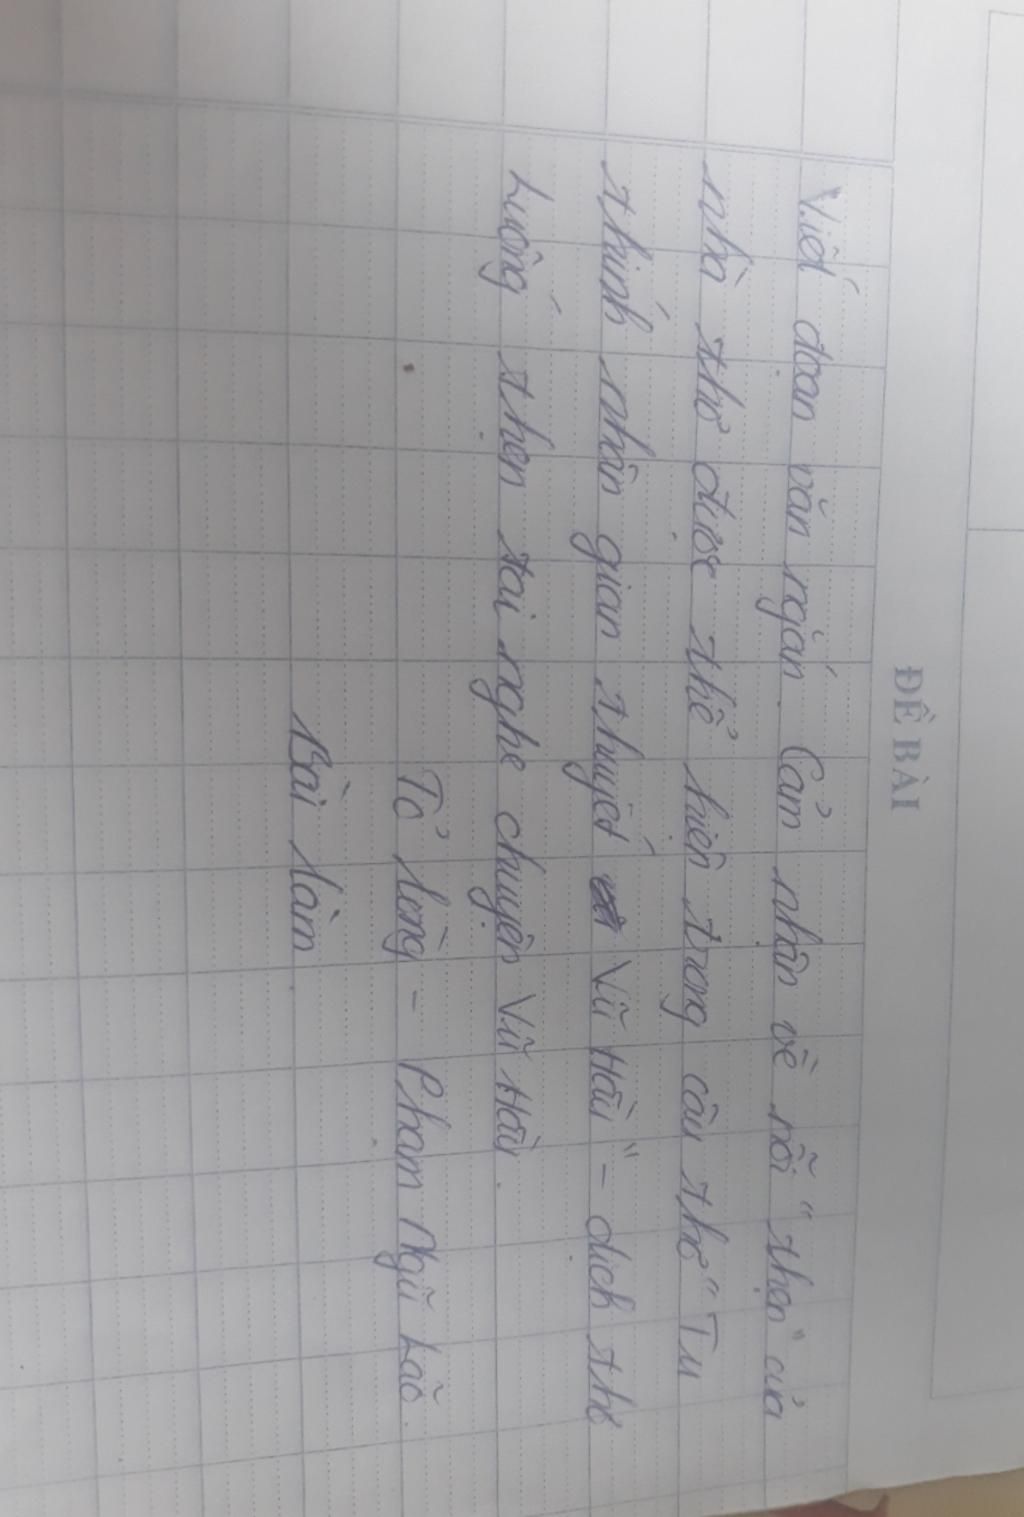 ĐỀ BÀI
Viết đoạn văn ngắn. Cảm nhận về nỗi "thẹn" của
nhà thơ được thể hiện trong câu thơ "Tu
thính nhân gian thuyết Vũ Hầu" - dịch thơ
Luống thẹn tai nghe chuyện Vũ Hầu.
Tỏ lòng - Phạm Ngũ Lão.
Bài làm